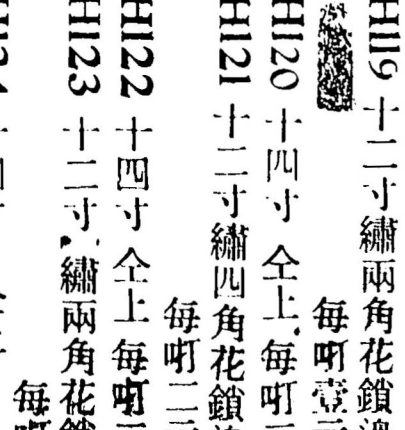 HI19 十二寸繡兩角花鎖邊
每呀壹元
HI20 十四寸 仝上 每呀二
HI21 十二寸繡四角花鎖邊
每呀二元
HI22 十四寸 仝上 每呀二
HI23 十二寸繡兩角花鎖
每呀